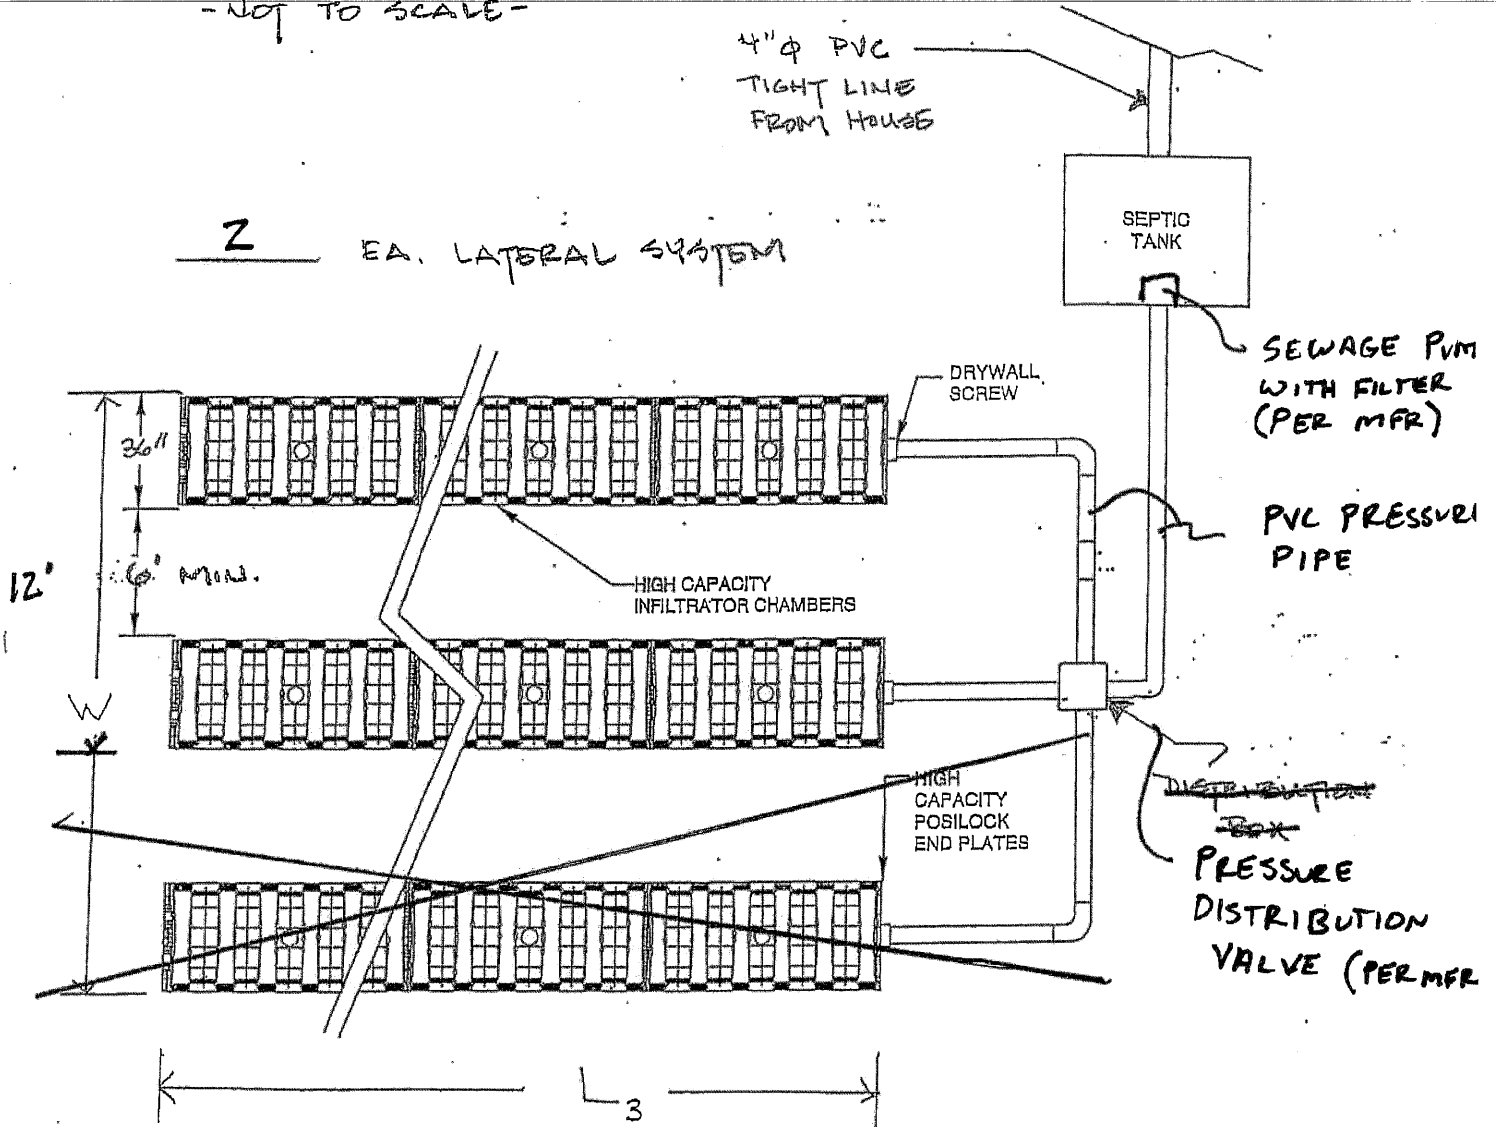 - NOT TO SCALE -
4"φ PVC
TIGHT LINE
FROM HOUSE
SEPTIC
TANK
2 EA. LATERAL SYSTEM
SEWAGE PUM
WITH FILTER
(PER MFR)
DRYWALL
SCREW
36"
PVC PRESSURE
PIPE
6' MIN.
12'
HIGH CAPACITY
INFILTRATOR CHAMBERS
W
DISTRIBUTION
BOX
HIGH
CAPACITY
POSILOCK
END PLATES
PRESSURE
DISTRIBUTION
VALVE (PER MFR
L3